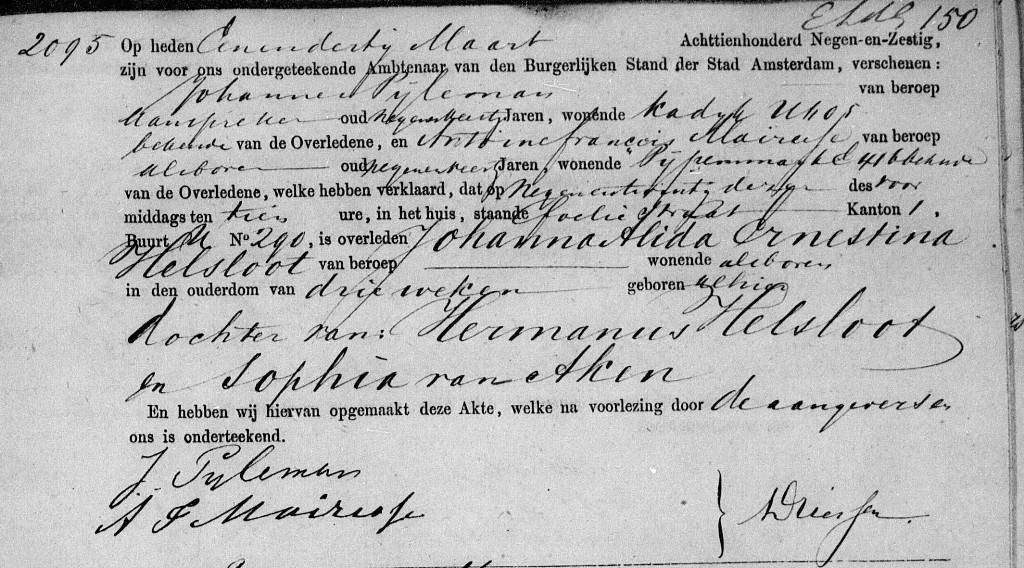 150
2095 Op heden Eenendertig Maart Achttienhonderd Negen-en-Zestig,
zijn voor ons ondergeteekende Ambtenaar van den Burgerlijken Stand der Stad Amsterdam, verschenen:
Johannes Pyleman van beroep
Aanspreker oud Jaren, wonende kadyk U 405
bekende van de Overledene, en Antoine françois Mairesse van beroep
alsboven oud Jaren, wonende bekende
van de Overledene, welke hebben verklaard, dat op Negenentwintig dezer des voor
middags ten tien ure, in het huis, staande Foelie Straat Kanton 1.
Buurt No 290, is overleden Johanna Alida Ernestina
Helsloot van beroep wonende alsboven
in den ouderdom van drie weken geboren alhier
dochter van: Hermanus Helsloot
en Sophia van Aken
En hebben wij hiervan opgemaakt deze Akte, welke na voorlezing door de aangevers en
ons is onderteekend.
J. Pyleman
A F Mairesse
ADriessen.